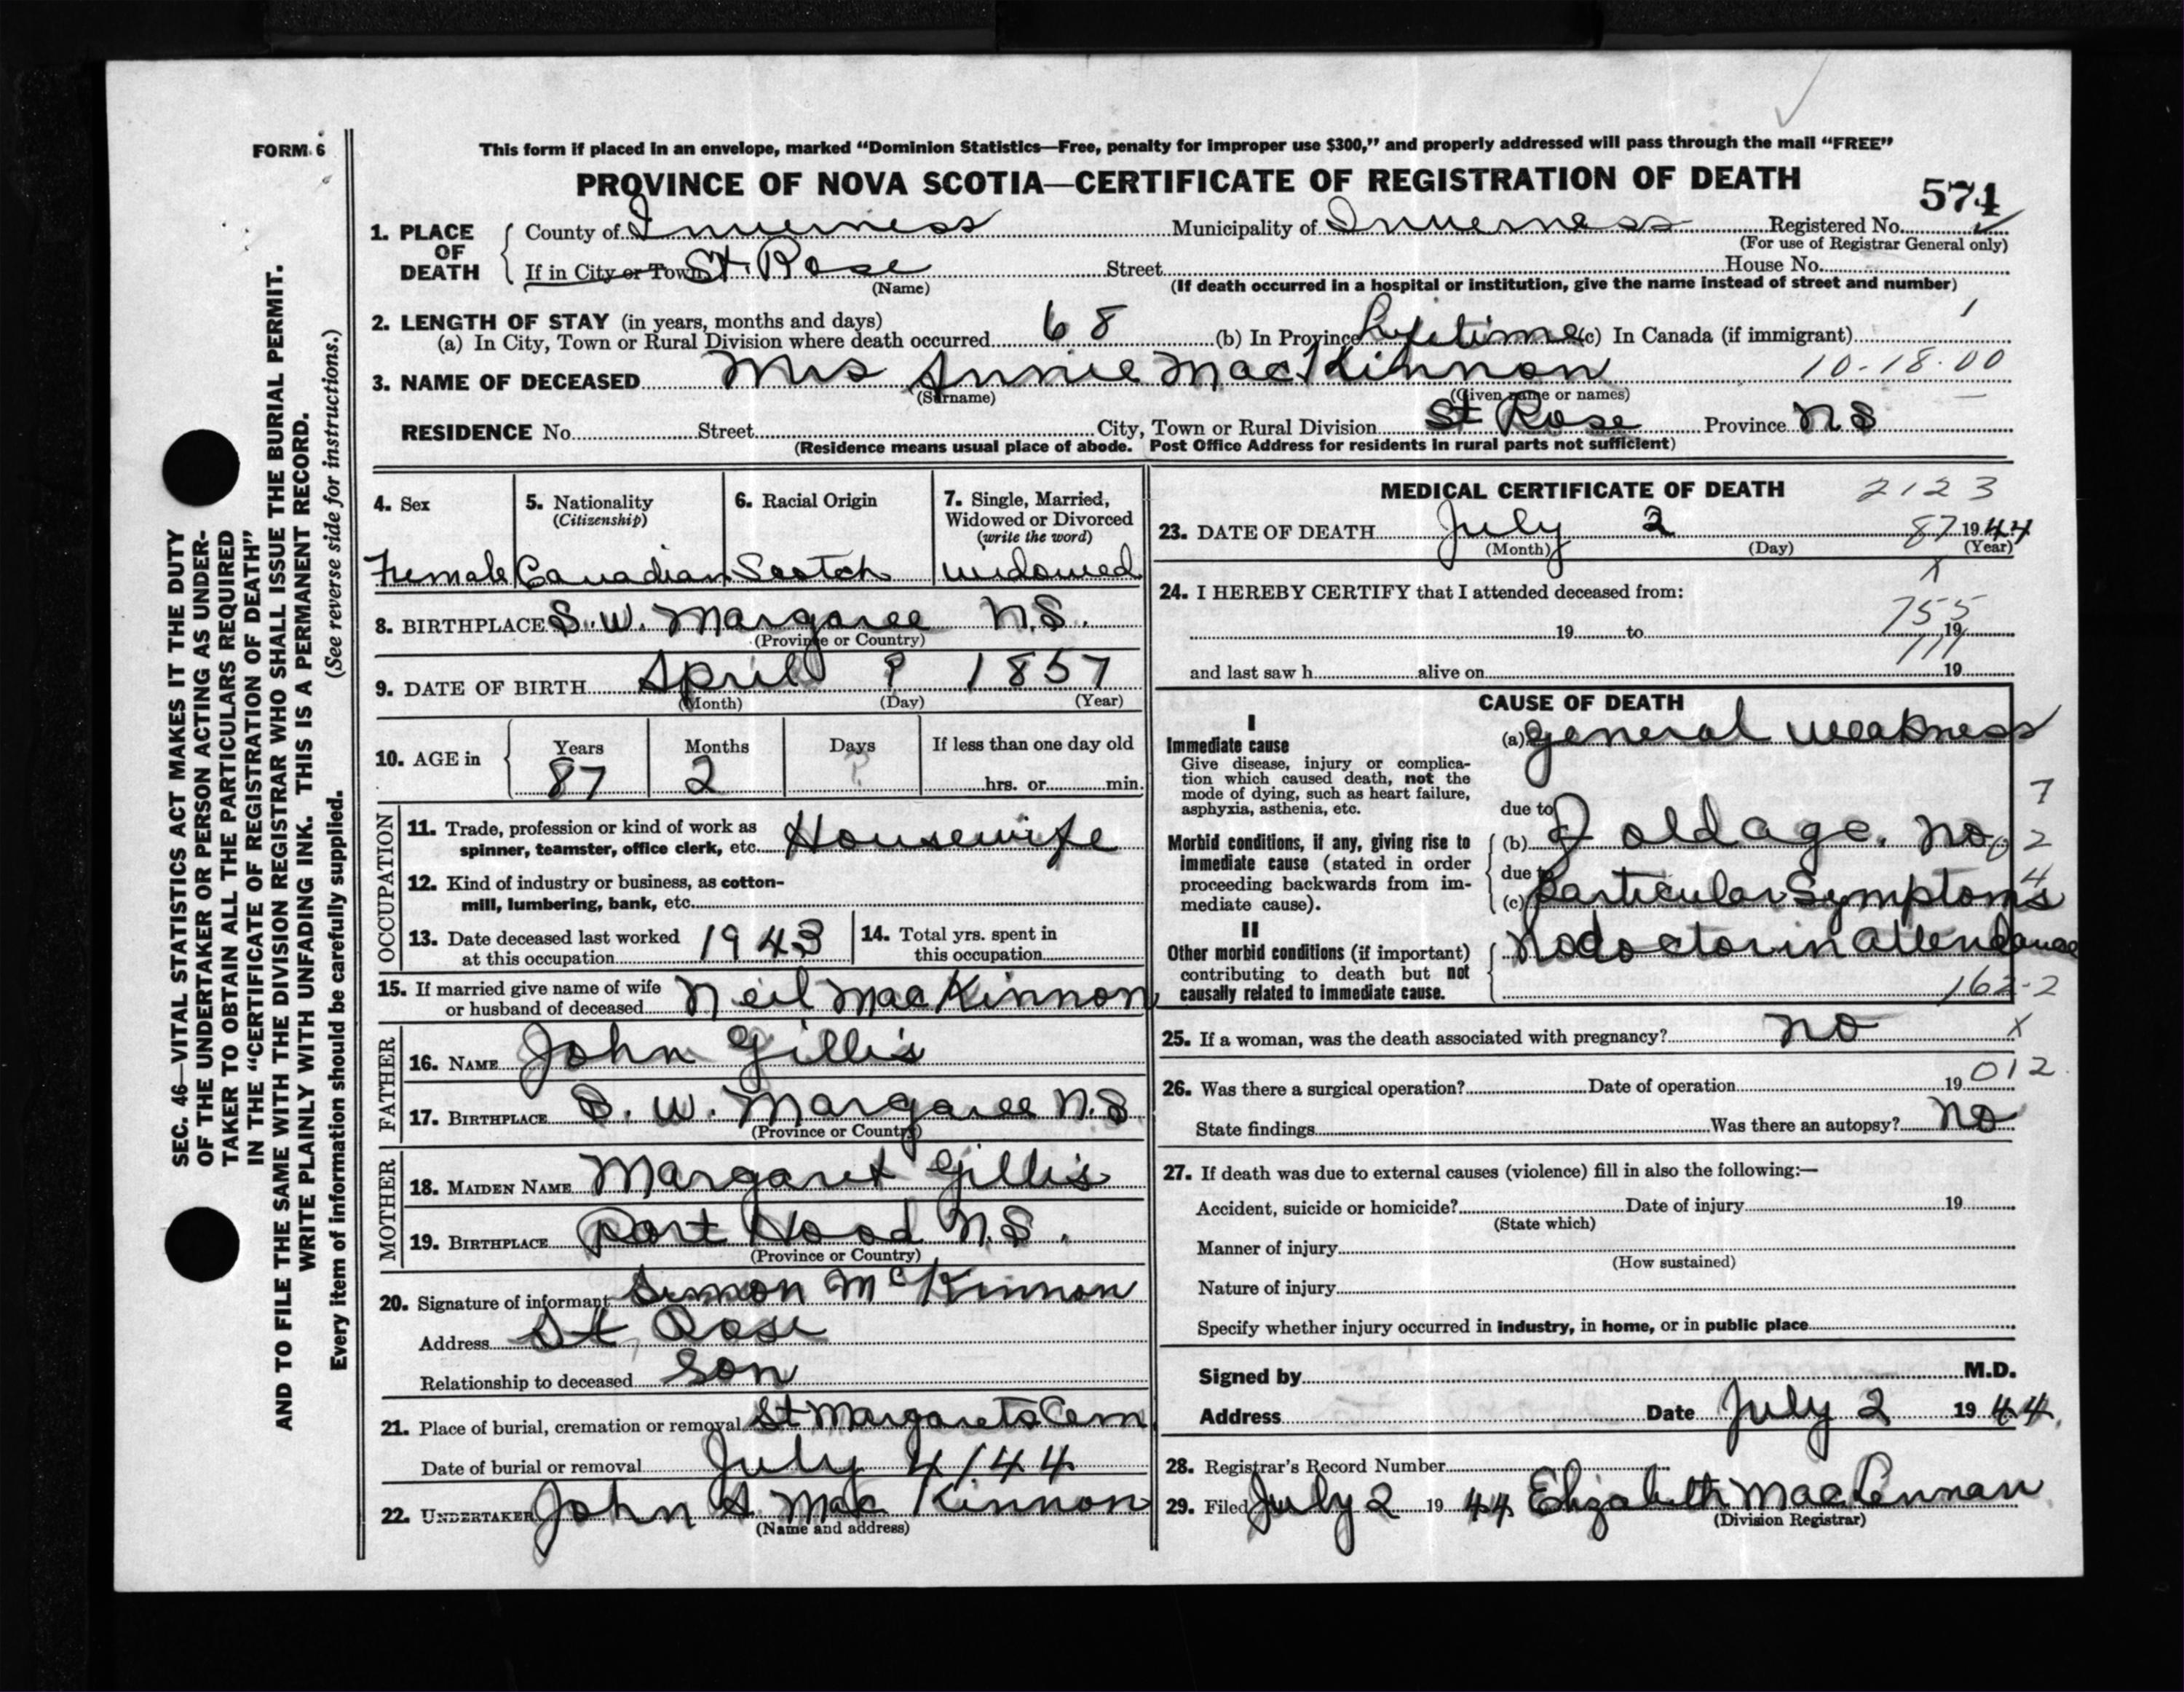 FORM 6
This form if placed in an envelope, marked “Dominion Statistics—Free, penalty for improper use $300,” and properly addressed will pass through the mail “FREE”
PROVINCE OF NOVA SCOTIA—CERTIFICATE OF REGISTRATION OF DEATH
574
1. PLACE OF DEATH County of Inverness Municipality of Inverness Registered No.
(For use of Registrar General only)
If in City or Town St. Rose Street House No.
(Name) (If death occurred in a hospital or institution, give the name instead of street and number)
2. LENGTH OF STAY (in years, months and days)
(a) In City, Town or Rural Division where death occurred 68 (b) In Province Lifetime (c) In Canada (if immigrant)
3. NAME OF DECEASED Mrs Annie MacKinnon 10-18-00
(Surname) (Given name or names)
RESIDENCE No. Street City, Town or Rural Division St Rose Province N S
(Residence means usual place of abode. Post Office Address for residents in rural parts not sufficient)
4. Sex
Female
5. Nationality
(Citizenship)
Canadian
6. Racial Origin
Scotch
7. Single, Married,
Widowed or Divorced
(write the word)
widowed
8. BIRTHPLACE S.W. Margaree N.S.
(Province or Country)
9. DATE OF BIRTH April ? 1857
(Month) (Day) (Year)
10. AGE in
Years Months Days If less than one day old
87 2 ? hrs. or min.
OCCUPATION
11. Trade, profession or kind of work as
spinner, teamster, office clerk, etc. Housewife
12. Kind of industry or business, as cotton-
mill, lumbering, bank, etc.
13. Date deceased last worked
at this occupation 1943
14. Total yrs. spent in
this occupation
15. If married give name of wife
or husband of deceased Neil MacKinnon
FATHER
16. NAME John Gillis
17. BIRTHPLACE S. W. Margaree N.S
(Province or Country)
MOTHER
18. MAIDEN NAME Margaret Gillis
19. BIRTHPLACE Port Hood N.S.
(Province or Country)
20. Signature of informant Simon McKinnon
Address St Rose
Relationship to deceased Son
21. Place of burial, cremation or removal St Margarets Cem.
Date of burial or removal July 4/44
22. UNDERTAKER John A. MacKinnon
(Name and address)
MEDICAL CERTIFICATE OF DEATH 2123
23. DATE OF DEATH July 2 87 1944
(Month) (Day) (Year)
X
24. I HEREBY CERTIFY that I attended deceased from:
755
19 to 19
111
and last saw h alive on 19
CAUSE OF DEATH
I
Immediate cause
Give disease, injury or complica-
tion which caused death, not the
mode of dying, such as heart failure,
asphyxia, asthenia, etc.
(a) general weakness
due to
Morbid conditions, if any, giving rise to
immediate cause (stated in order
proceeding backwards from im-
mediate cause).
(b) old age. no
due to
(c) particular symptoms
7
2
4
II
Other morbid conditions (if important)
contributing to death but not
causally related to immediate cause.
No doctor in attendance
162-2
25. If a woman, was the death associated with pregnancy? no X
012
26. Was there a surgical operation? Date of operation 19
State findings Was there an autopsy? no
27. If death was due to external causes (violence) fill in also the following:—
Accident, suicide or homicide? Date of injury 19
(State which)
Manner of injury
(How sustained)
Nature of injury
Specify whether injury occurred in industry, in home, or in public place
Signed by M.D.
Address Date July 2 1944.
28. Registrar's Record Number
29. Filed July 2 1944 Elizabeth MacLennan
(Division Registrar)
SEC. 46—VITAL STATISTICS ACT MAKES IT THE DUTY
OF THE UNDERTAKER OR PERSON ACTING AS UNDER-
TAKER TO OBTAIN ALL THE PARTICULARS REQUIRED
IN THE “CERTIFICATE OF REGISTRATION OF DEATH”
AND TO FILE THE SAME WITH THE DIVISION REGISTRAR WHO SHALL ISSUE THE BURIAL PERMIT.
WRITE PLAINLY WITH UNFADING INK. THIS IS A PERMANENT RECORD.
Every item of information should be carefully supplied. (See reverse side for instructions.)